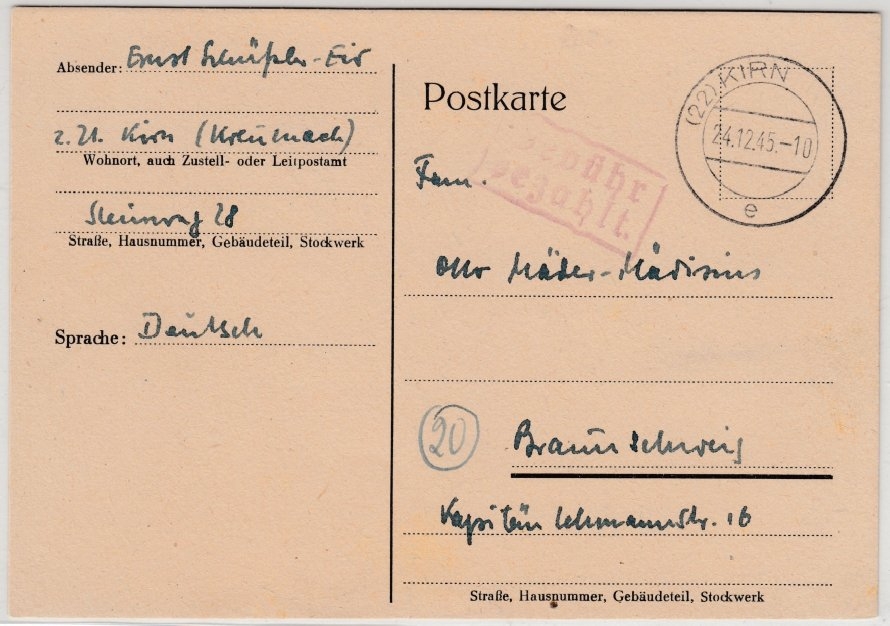 Absender: Ernst
z. Zt. Kirn (Kreuznach)
Wohnort, auch Zustell- oder Leitpostamt
Steinweg 28
Straße, Hausnummer, Gebäudeteil, Stockwerk
Sprache: Deutsch
Postkarte
(22) KIRN
24.12.45.-10
e
Gebühr
bezahlt.
Fam.
Otto Mäder-
(20) Braunschweig
Kapitän Lehmannstr. 16
Straße, Hausnummer, Gebäudeteil, Stockwerk